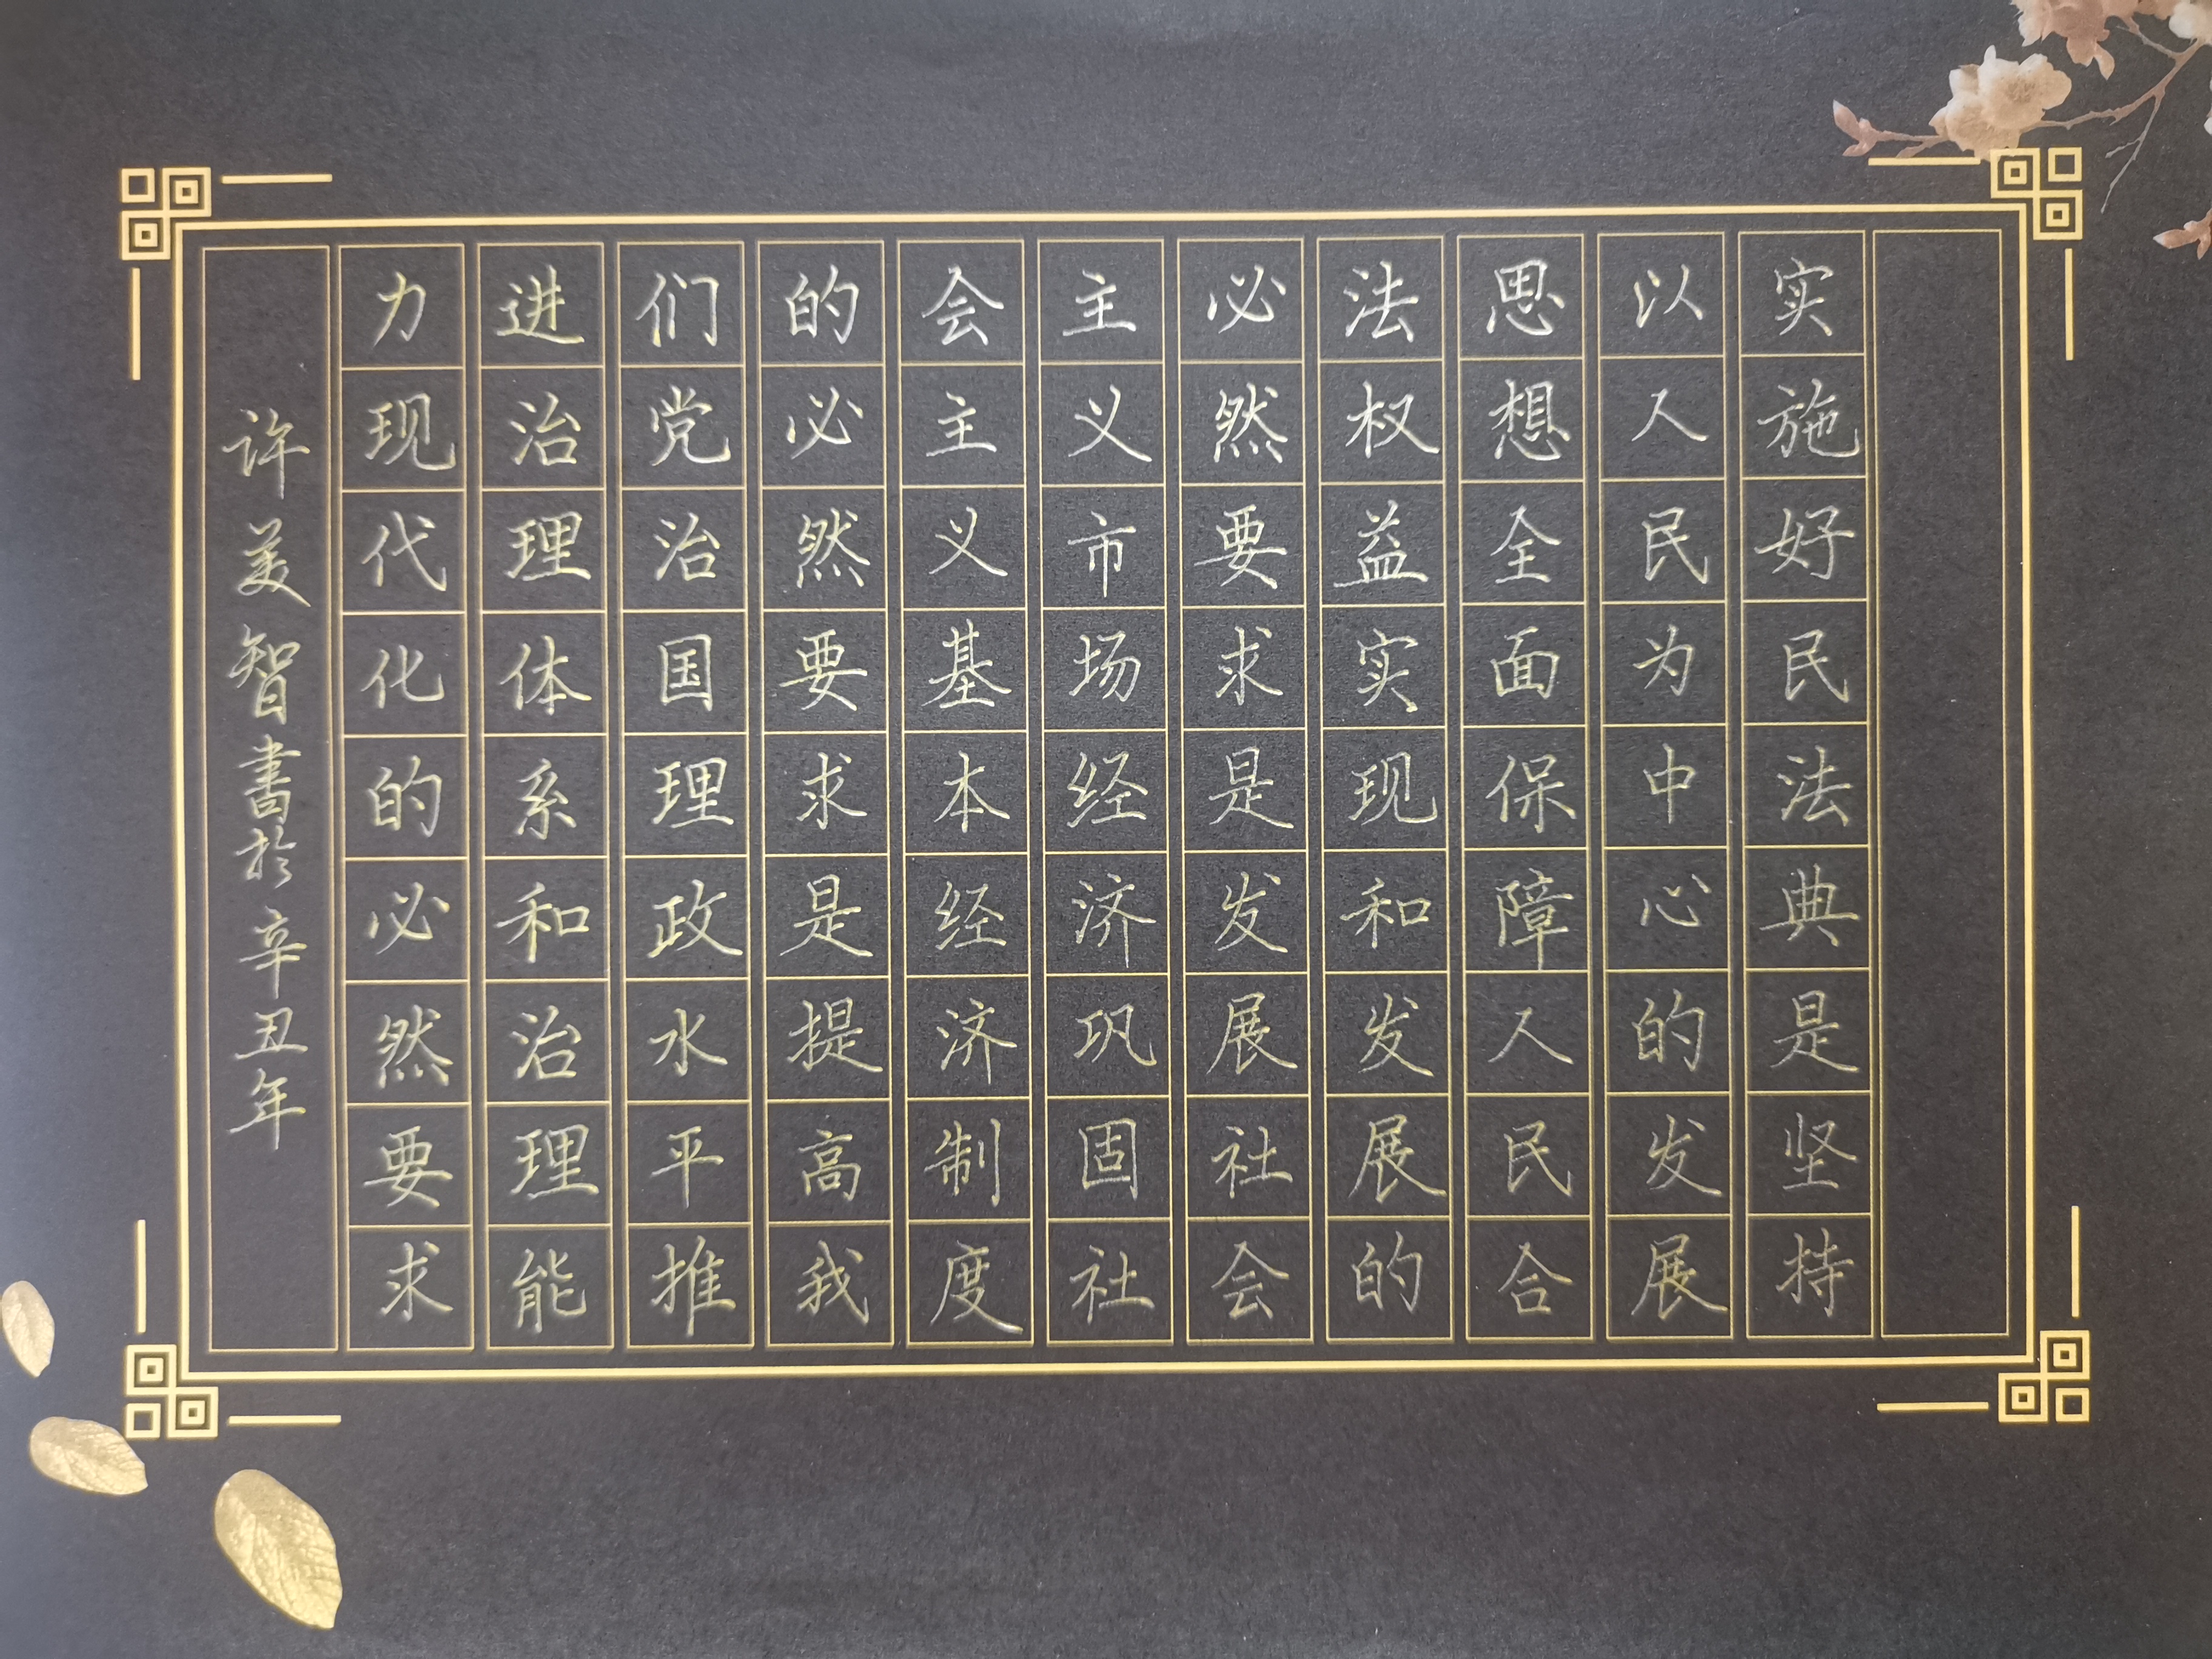 实施好民法典是坚持
以人民为中心的发展
思想全面保障人民合
法权益实现和发展的
必然要求是发展社会
主义市场经济巩固社
会主义基本经济制度
的必然要求是提高我
们党治国理政水平推
进治理体系和治理能
力现代化的必然要求
许美智書於辛丑年